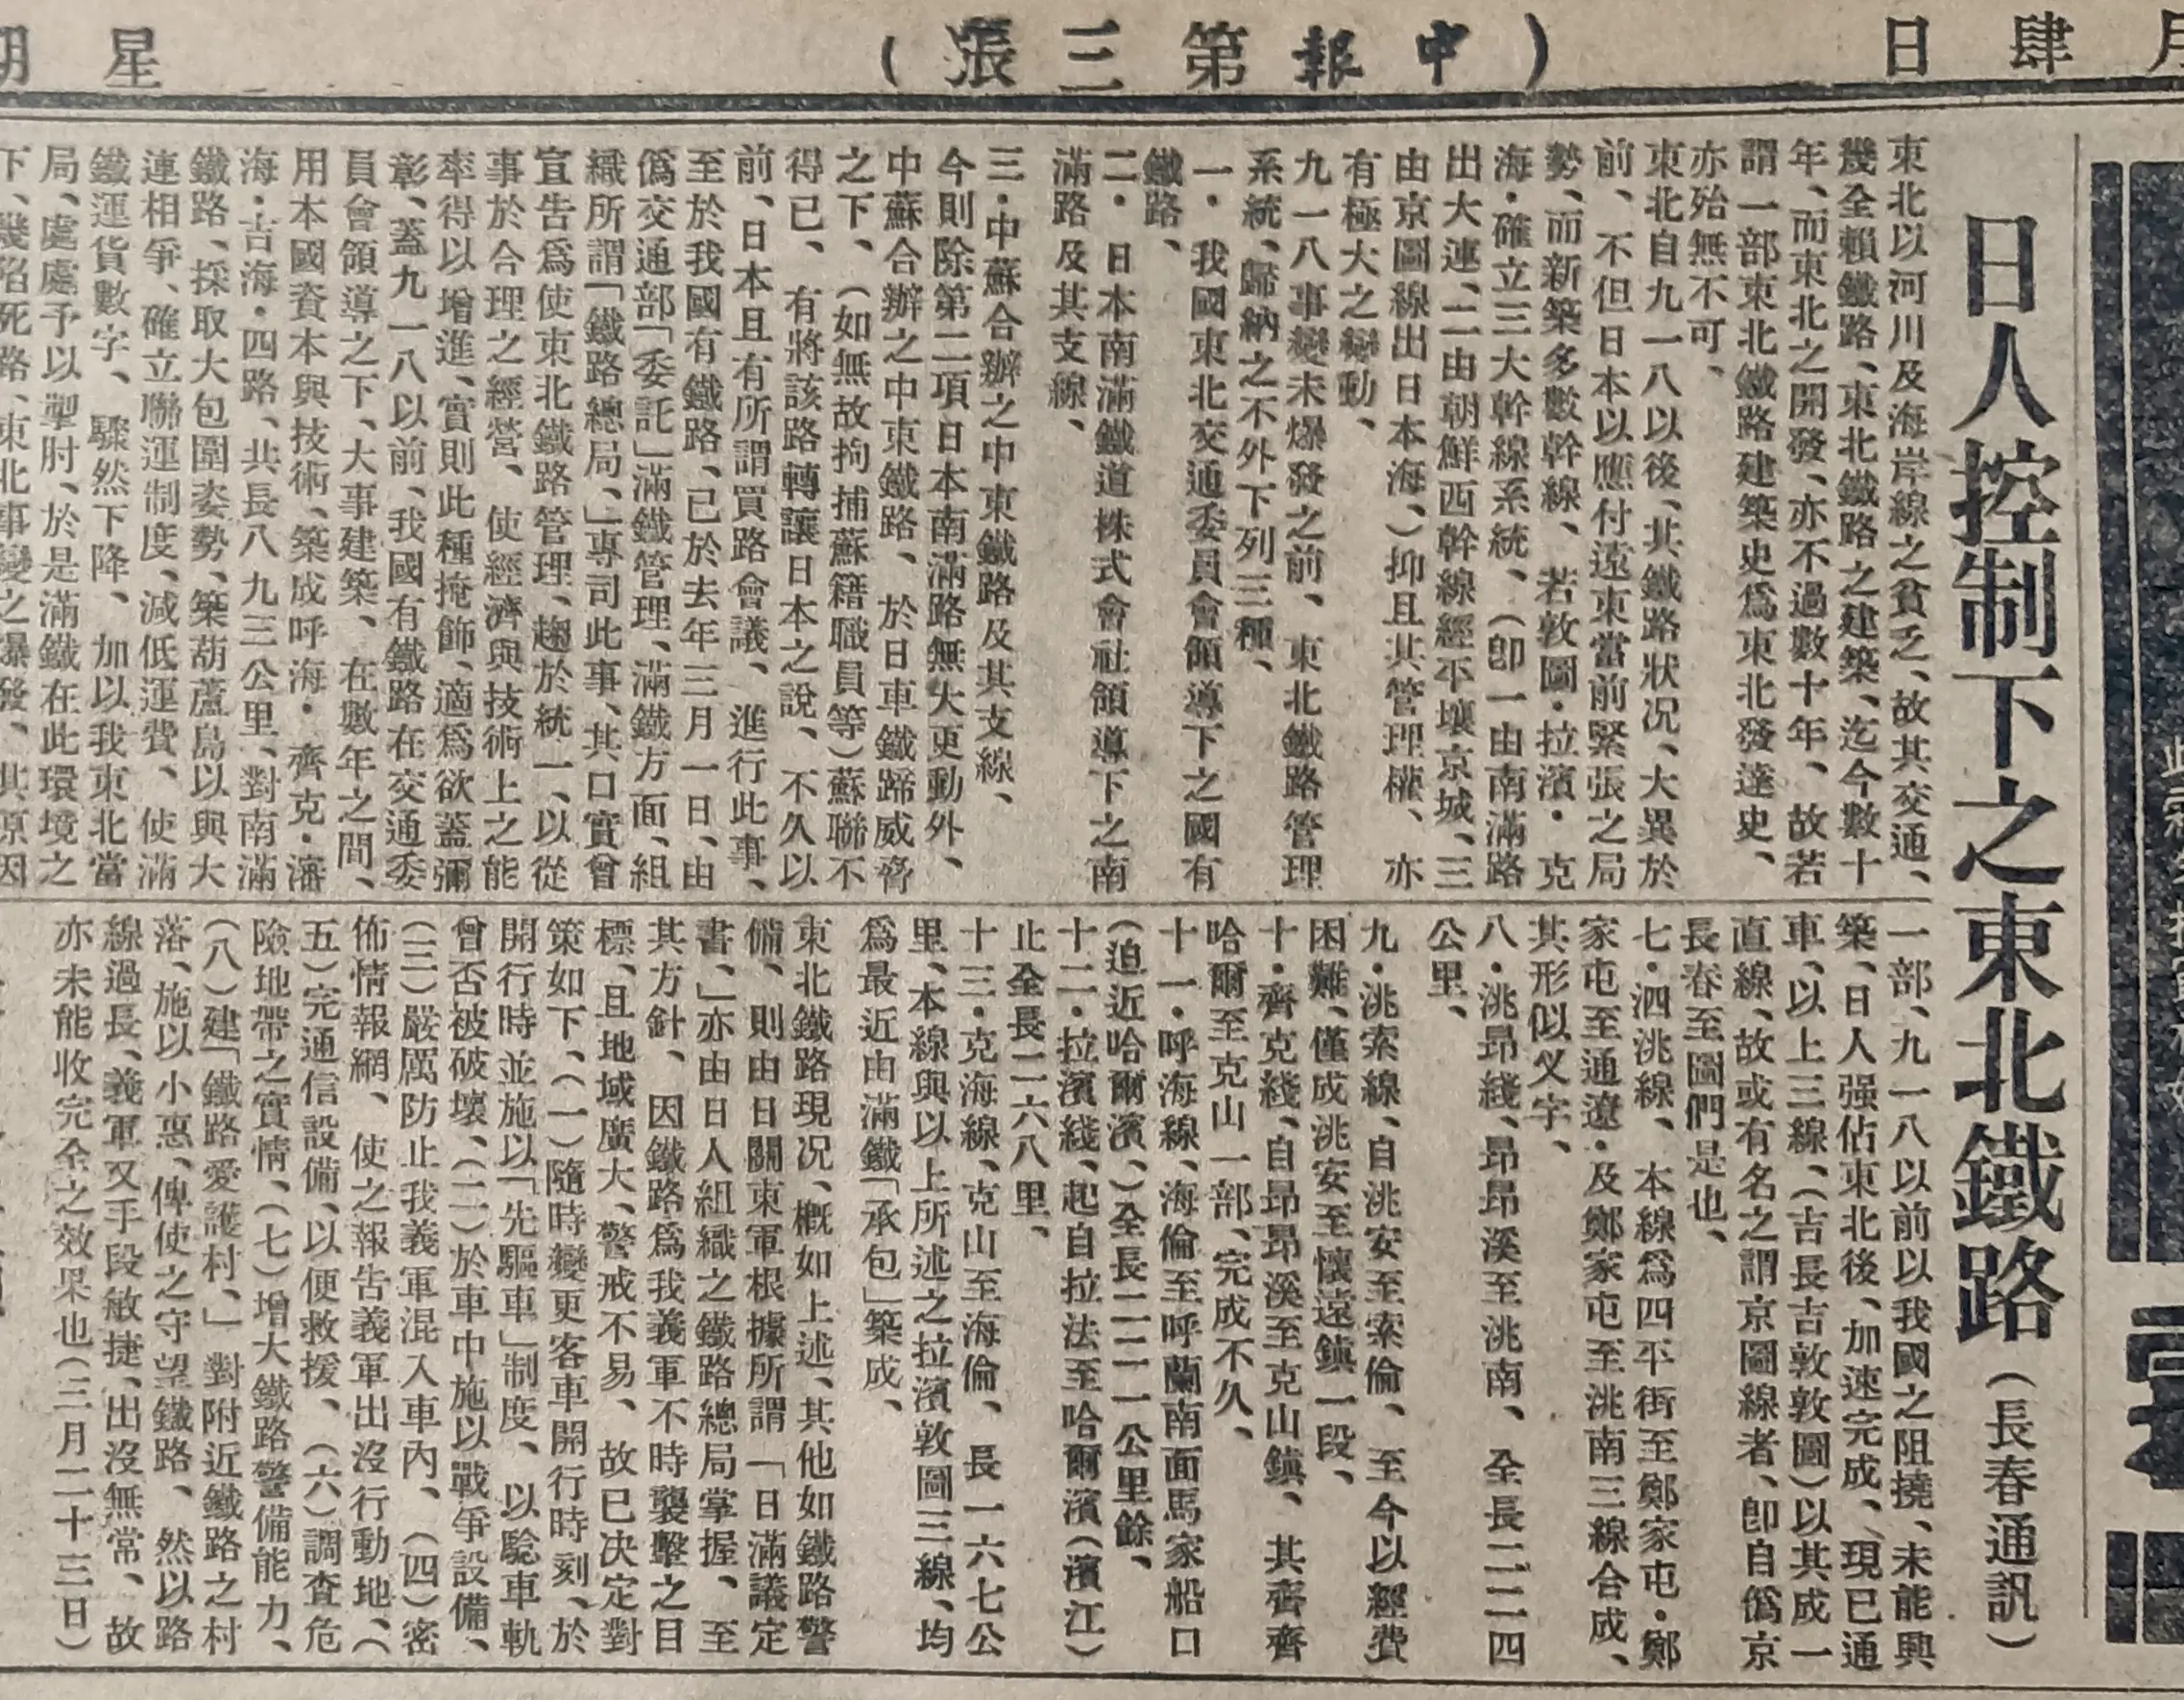 月肆日
（中報第三張）
星期
日人控制下之東北鐵路（長春通訊）
東北以河川及海岸線之貧乏、故其交通、
幾全賴鐵路、東北鐵路之建築、迄今數十
年、而東北之開發、亦不過數十年、故若
謂一部東北鐵路建築史爲東北發達史、
亦殆無不可、
東北自九一八以後、其鐵路狀况、大異於
前、不但日本以應付遠東當前緊張之局
勢、而新築多數幹線、若敦圖・拉濱・克
海・確立三大幹線系統、（卽一由南滿路
出大連、二由朝鮮西幹線經平壤京城、三
由京圖線出日本海、）抑且其管理權、亦
有極大之變動、
九一八事變未爆發之前、東北鐵路管理
系統、歸納之不外下列三種、
一・我國東北交通委員會領導下之國有
鐵路、
二・日本南滿鐵道株式會社領導下之南
滿路及其支線、
三・中蘇合辦之中東鐵路及其支線、
今則除第二項日本南滿路無大更動外、
中蘇合辦之中東鐵路、於日車鐵蹄威脅
之下、（如無故拘捕蘇籍職員等）蘇聯不
得已、有將該路轉讓日本之說、不久以
前、日本且有所謂買路會議、進行此事、
至於我國有鐵路、已於去年三月一日、由
僞交通部「委託」滿鐵管理、滿鐵方面、組
織所謂「鐵路總局、」專司此事、其口實曾
宣告爲使東北鐵路管理、趨於統一、以從
事於合理之經營、使經濟與技術上之能
率得以增進、實則此種掩飾、適爲欲蓋彌
彰、蓋九一八以前、我國有鐵路在交通委
員會領導之下、大事建築、在數年之間、
用本國資本與技術、築成呼海・齊克・瀋
海・吉海・四路、共長八九三公里、對南滿
鐵路、採取大包圍姿勢、築葫蘆島以與大
連相爭、確立聯運制度、減低運費、使滿
鐵運貨數字、驟然下降、加以我東北當
局、處處予以掣肘、於是滿鐵在此環境之
下、幾陷死路、東北事變之爆發、其原因
一部、九一八以前以我國之阻撓、未能興
築、日人强佔東北後、加速完成、現已通
車、以上三線、（吉長吉敦敦圖）以其成一
直線、故或有名之謂京圖線者、卽自僞京
長春至圖們是也、
七・泗洮線、本線爲四平街至鄭家屯・鄭
家屯至通遼・及鄭家屯至洮南三線合成、
其形似义字、
八・洮昂綫、昂昂溪至洮南、全長二二四
公里、
九・洮索線、自洮安至索倫、至今以經費
困難、僅成洮安至懷遠鎮一段、
十・齊克綫、自昂昂溪至克山鎮、其齊齊
哈爾至克山一部、完成不久、
十一・呼海線、海倫至呼蘭南面馬家船口
（迫近哈爾濱、）全長二二一公里餘、
十二・拉濱綫、起自拉法至哈爾濱（濱江）
止全長二六八里、
十三・克海線、克山至海倫、長一六七公
里、本線與以上所述之拉濱敦圖三線、均
爲最近由滿鐵「承包」築成、
東北鐵路現况、概如上述、其他如鐵路警
備、則由日關東軍根據所謂「日滿議定
書、」亦由日人組織之鐵路總局掌握、至
其方針、因鐵路爲我義軍不時襲擊之目
標、且地域廣大、警戒不易、故已决定對
策如下、（一）隨時變更客車開行時刻、於
開行時並施以「先驅車」制度、以驗車軌
曾否被破壞、（二）於車中施以戰爭設備、
（三）嚴厲防止我義軍混入車內、（四）密
佈情報網、使之報吿義軍出沒行動地、（
五）完通信設備、以便救援、（六）調查危
險地帶之實情、（七）增大鐵路警備能力、
（八）建「鐵路愛護村、」對附近鐵路之村
落、施以小惠、俾使之守望鐵路、然以路
線過長、義軍又手段敏捷、出沒無常、故
亦未能收完全之效果也（三月二十三日）